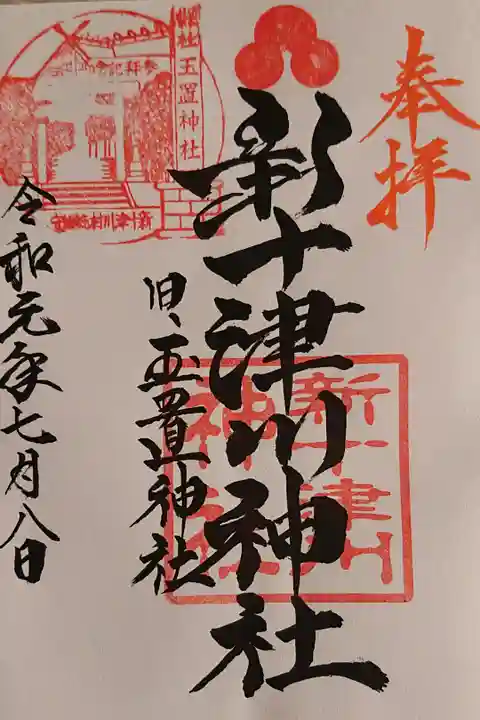 奉拝
新十津川神社
新十津川
神社
旧、玉置神社
社玉置神社
参拝記念
令和元年七月八日